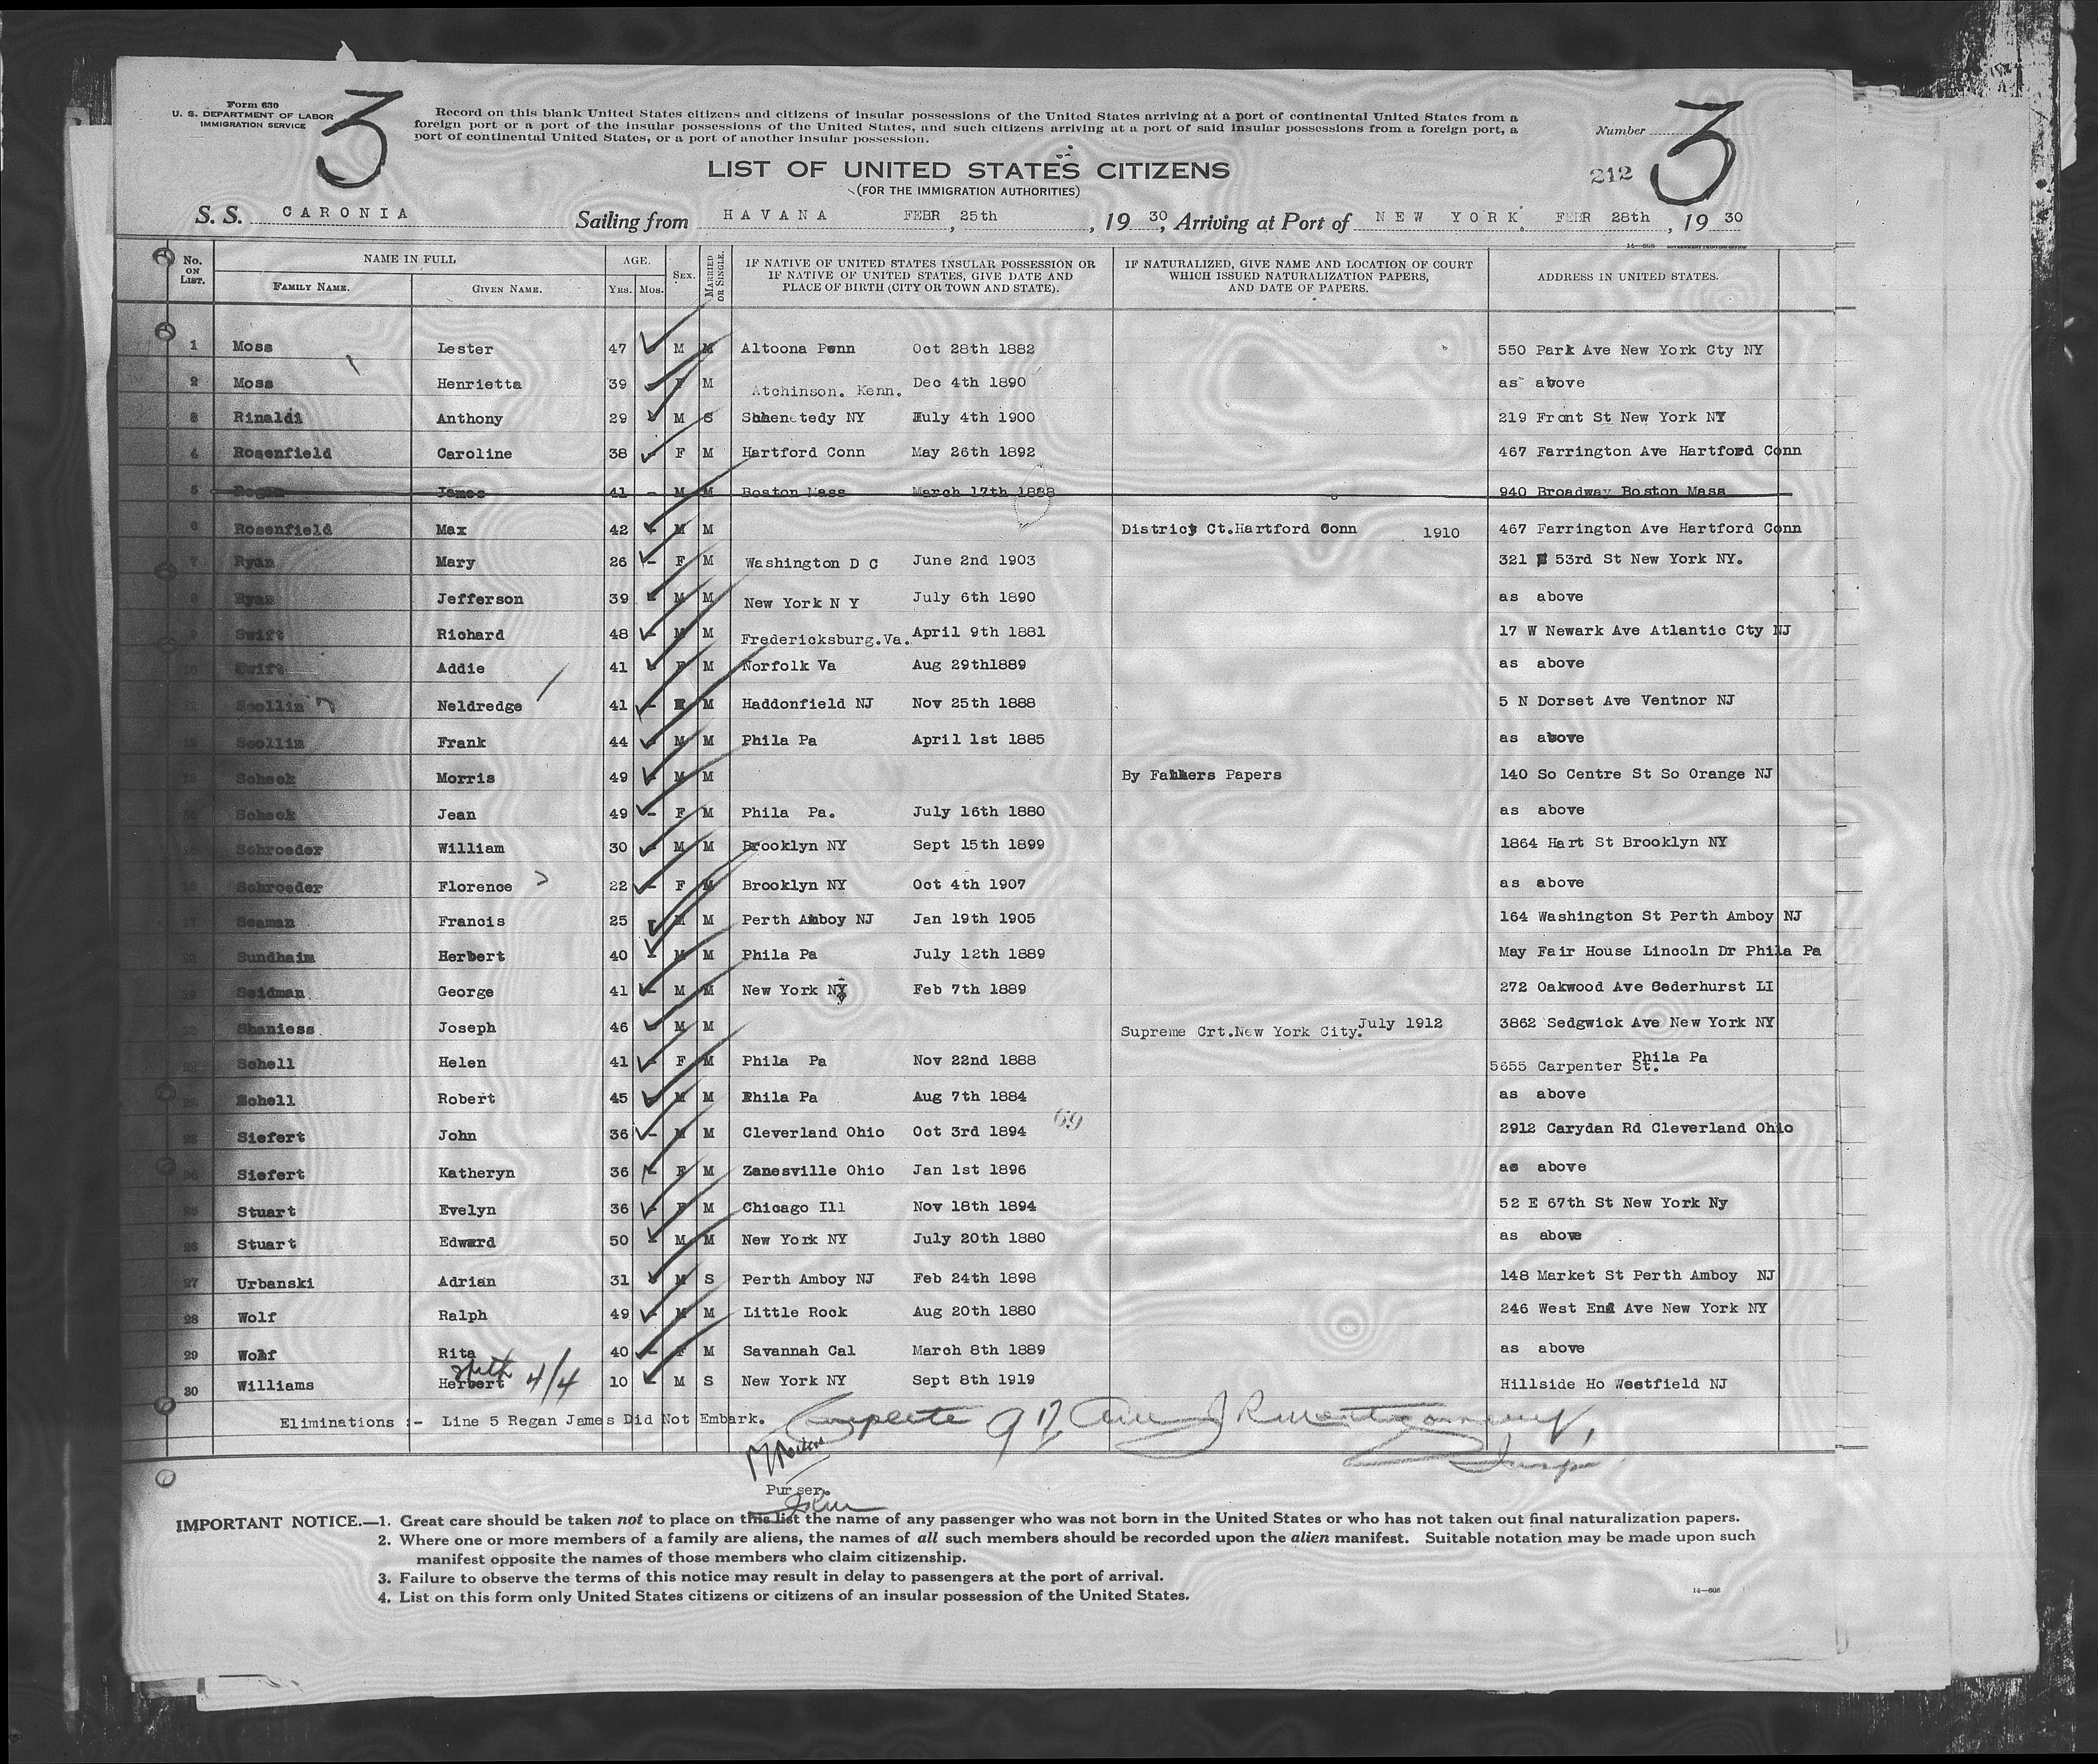 Form 630
U. S. DEPARTMENT OF LABOR
IMMIGRATION SERVICE
3
Record on this blank United States citizens and citizens of insular possessions of the United States arriving at a port of continental United States from a
foreign port or a port of the insular possessions of the United States, and such citizens arriving at a port of said insular possessions from a foreign port, a
port of continental United States, or a port of another insular possession.
Number
3
212
LIST OF UNITED STATES CITIZENS
(FOR THE IMMIGRATION AUTHORITIES)
S. S. CARONIA Sailing from HAVANA FEBR 25th, 1930, Arriving at Port of NEW YORK, FEBR 28th, 1930
14—608
No. ON LIST. NAME IN FULL FAMILY NAME. GIVEN NAME. AGE. YRS. MOS. SEX. MARRIED OR SINGLE. IF NATIVE OF UNITED STATES INSULAR POSSESSION OR IF NATIVE OF UNITED STATES, GIVE DATE AND PLACE OF BIRTH (CITY OR TOWN AND STATE). IF NATURALIZED, GIVE NAME AND LOCATION OF COURT WHICH ISSUED NATURALIZATION PAPERS, AND DATE OF PAPERS. ADDRESS IN UNITED STATES.
1 Moss Lester 47 M M Altoona Penn Oct 28th 1882 550 Park Ave New York Cty NY
2 Moss Henrietta 39 F M Atchinson. Kenn. Dec 4th 1890 as above
3 Rinaldi Anthony 29 M S Shenetedy NY July 4th 1900 219 Front St New York NY
4 Rosenfield Caroline 38 F M Hartford Conn May 26th 1892 467 Farrington Ave Hartford Conn
5 Regan James 41 - M M Boston Mass March 17th 1888 940 Broadway Boston Mass
6 Rosenfield Max 42 - M M District Ct.Hartford Conn 1910 467 Farrington Ave Hartford Conn
7 Ryan Mary 26 - F M Washington D C June 2nd 1903 321 E 53rd St New York NY.
8 Ryan Jefferson 39 - M M New York N Y July 6th 1890 as above
9 Swift Richard 48 - M M Fredericksburg.Va. April 9th 1881 17 W Newark Ave Atlantic Cty NJ
10 Swift Addie 41 - F M Norfolk Va Aug 29th1889 as above
11 Scollin Neldredge 41 - F M Haddonfield NJ Nov 25th 1888 5 N Dorset Ave Ventnor NJ
12 Scollin Frank 44 - M M Phila Pa April 1st 1885 as above
13 Scheck Morris 49 - M M By Fathers Papers 140 So Centre St So Orange NJ
14 Scheck Jean 49 - F M Phila Pa. July 16th 1880 as above
15 Schroeder William 30 - M M Brooklyn NY Sept 15th 1899 1864 Hart St Brooklyn NY
16 Schroeder Florence 22 - F M Brooklyn NY Oct 4th 1907 as above
17 Seaman Francis 25 - M M Perth Amboy NJ Jan 19th 1905 164 Washington St Perth Amboy NJ
18 Sundhaim Herbert 40 - M M Phila Pa July 12th 1889 May Fair House Lincoln Dr Phila Pa
19 Seidman George 41 - M M New York NY Feb 7th 1889 272 Oakwood Ave Cederhurst LI
20 Shaniess. Joseph 46 - M M Supreme Crt.New York City. July 1912 3862 Sedgwick Ave New York NY
21 Schell Helen 41 - F M Phila Pa Nov 22nd 1888 5655 Carpenter St. Phila Pa
22 Schell Robert 45 - M M Phila Pa Aug 7th 1884 as above
69
23 Siefert John 36 - M M Cleverland Ohio Oct 3rd 1894 2912 Carydan Rd Cleverland Ohio
24 Siefert Katheryn 36 - F M Zanesville Ohio Jan 1st 1896 as above
25 Stuart Evelyn 36 - F M Chicago Ill Nov 18th 1894 52 E 67th St New York Ny
26 Stuart Edward 50 - M M New York NY July 20th 1880 as above
27 Urbanski Adrian 31 - M S Perth Amboy NJ Feb 24th 1898 148 Market St Perth Amboy NJ
28 Wolf Ralph 49 - M M Little Rock Aug 20th 1880 246 West End Ave New York NY
29 Wolf Rita 40 - F M Savannah Cal March 8th 1889 as above
4/4
30 Williams Herbert 10 - M S New York NY Sept 8th 1919 Hillside Ho Westfield NJ
Eliminations :- Line 5 Regan James Did Not Embark. Complete J R Montgomery,
Insp
Purser.
IMPORTANT NOTICE.—1. Great care should be taken not to place on this list the name of any passenger who was not born in the United States or who has not taken out final naturalization papers.
2. Where one or more members of a family are aliens, the names of all such members should be recorded upon the alien manifest. Suitable notation may be made upon such
manifest opposite the names of those members who claim citizenship.
3. Failure to observe the terms of this notice may result in delay to passengers at the port of arrival.
4. List on this form only United States citizens or citizens of an insular possession of the United States.
14—608